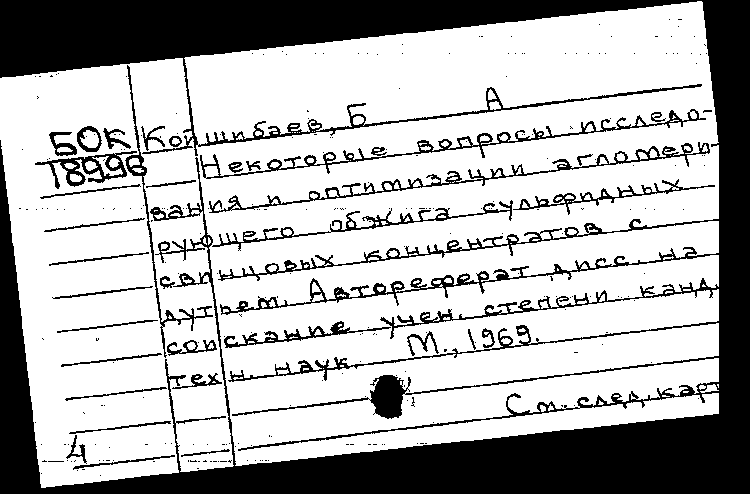 БОК Койшибаев, Б А
18996 Некоторые вопросы исследо-
вания и оптимизации агломери-
рующего обжига сульфидных
свинцовых концентратов с
дутьем. Автореферат дисс. на
соискание учен. степени канд.
техн. наук. М., 1969.
См. след. карт
4